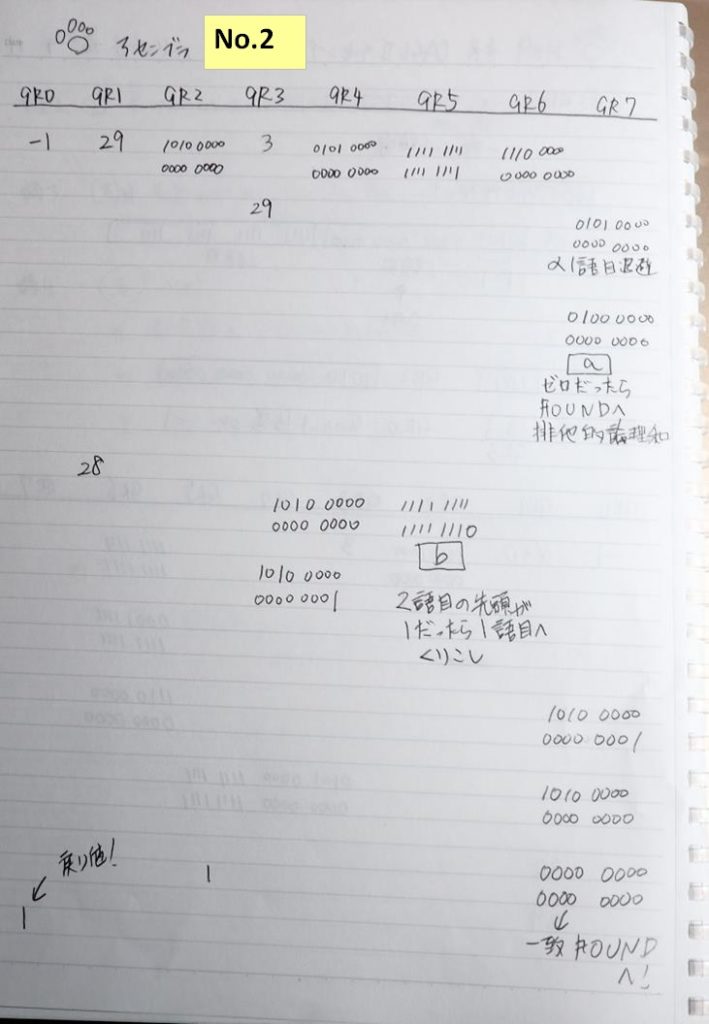 アセンブラ No.2
GR0 GR1 GR2 GR3 GR4 GR5 GR6 GR7
-1 29 1010 0000 3 0101 0000 1111 1111 1110 0000
0000 0000 0000 0000 1111 1111 0000 0000
29
0101 0000
0000 0000
α1語目退避
0100 0000
0000 0000
a
ゼロだったら
FOUNDへ
排他的論理和
28
1010 0000 1111 1111
0000 0000 1111 1110
b
1010 0000
0000 0001
2語目の先頭が
1だったら1語目へ
くりこし
1010 0000
0000 0001
1010 0000
0000 0000
戻り値!
1
0000 0000
0000 0000
1
一致FOUND
へ!